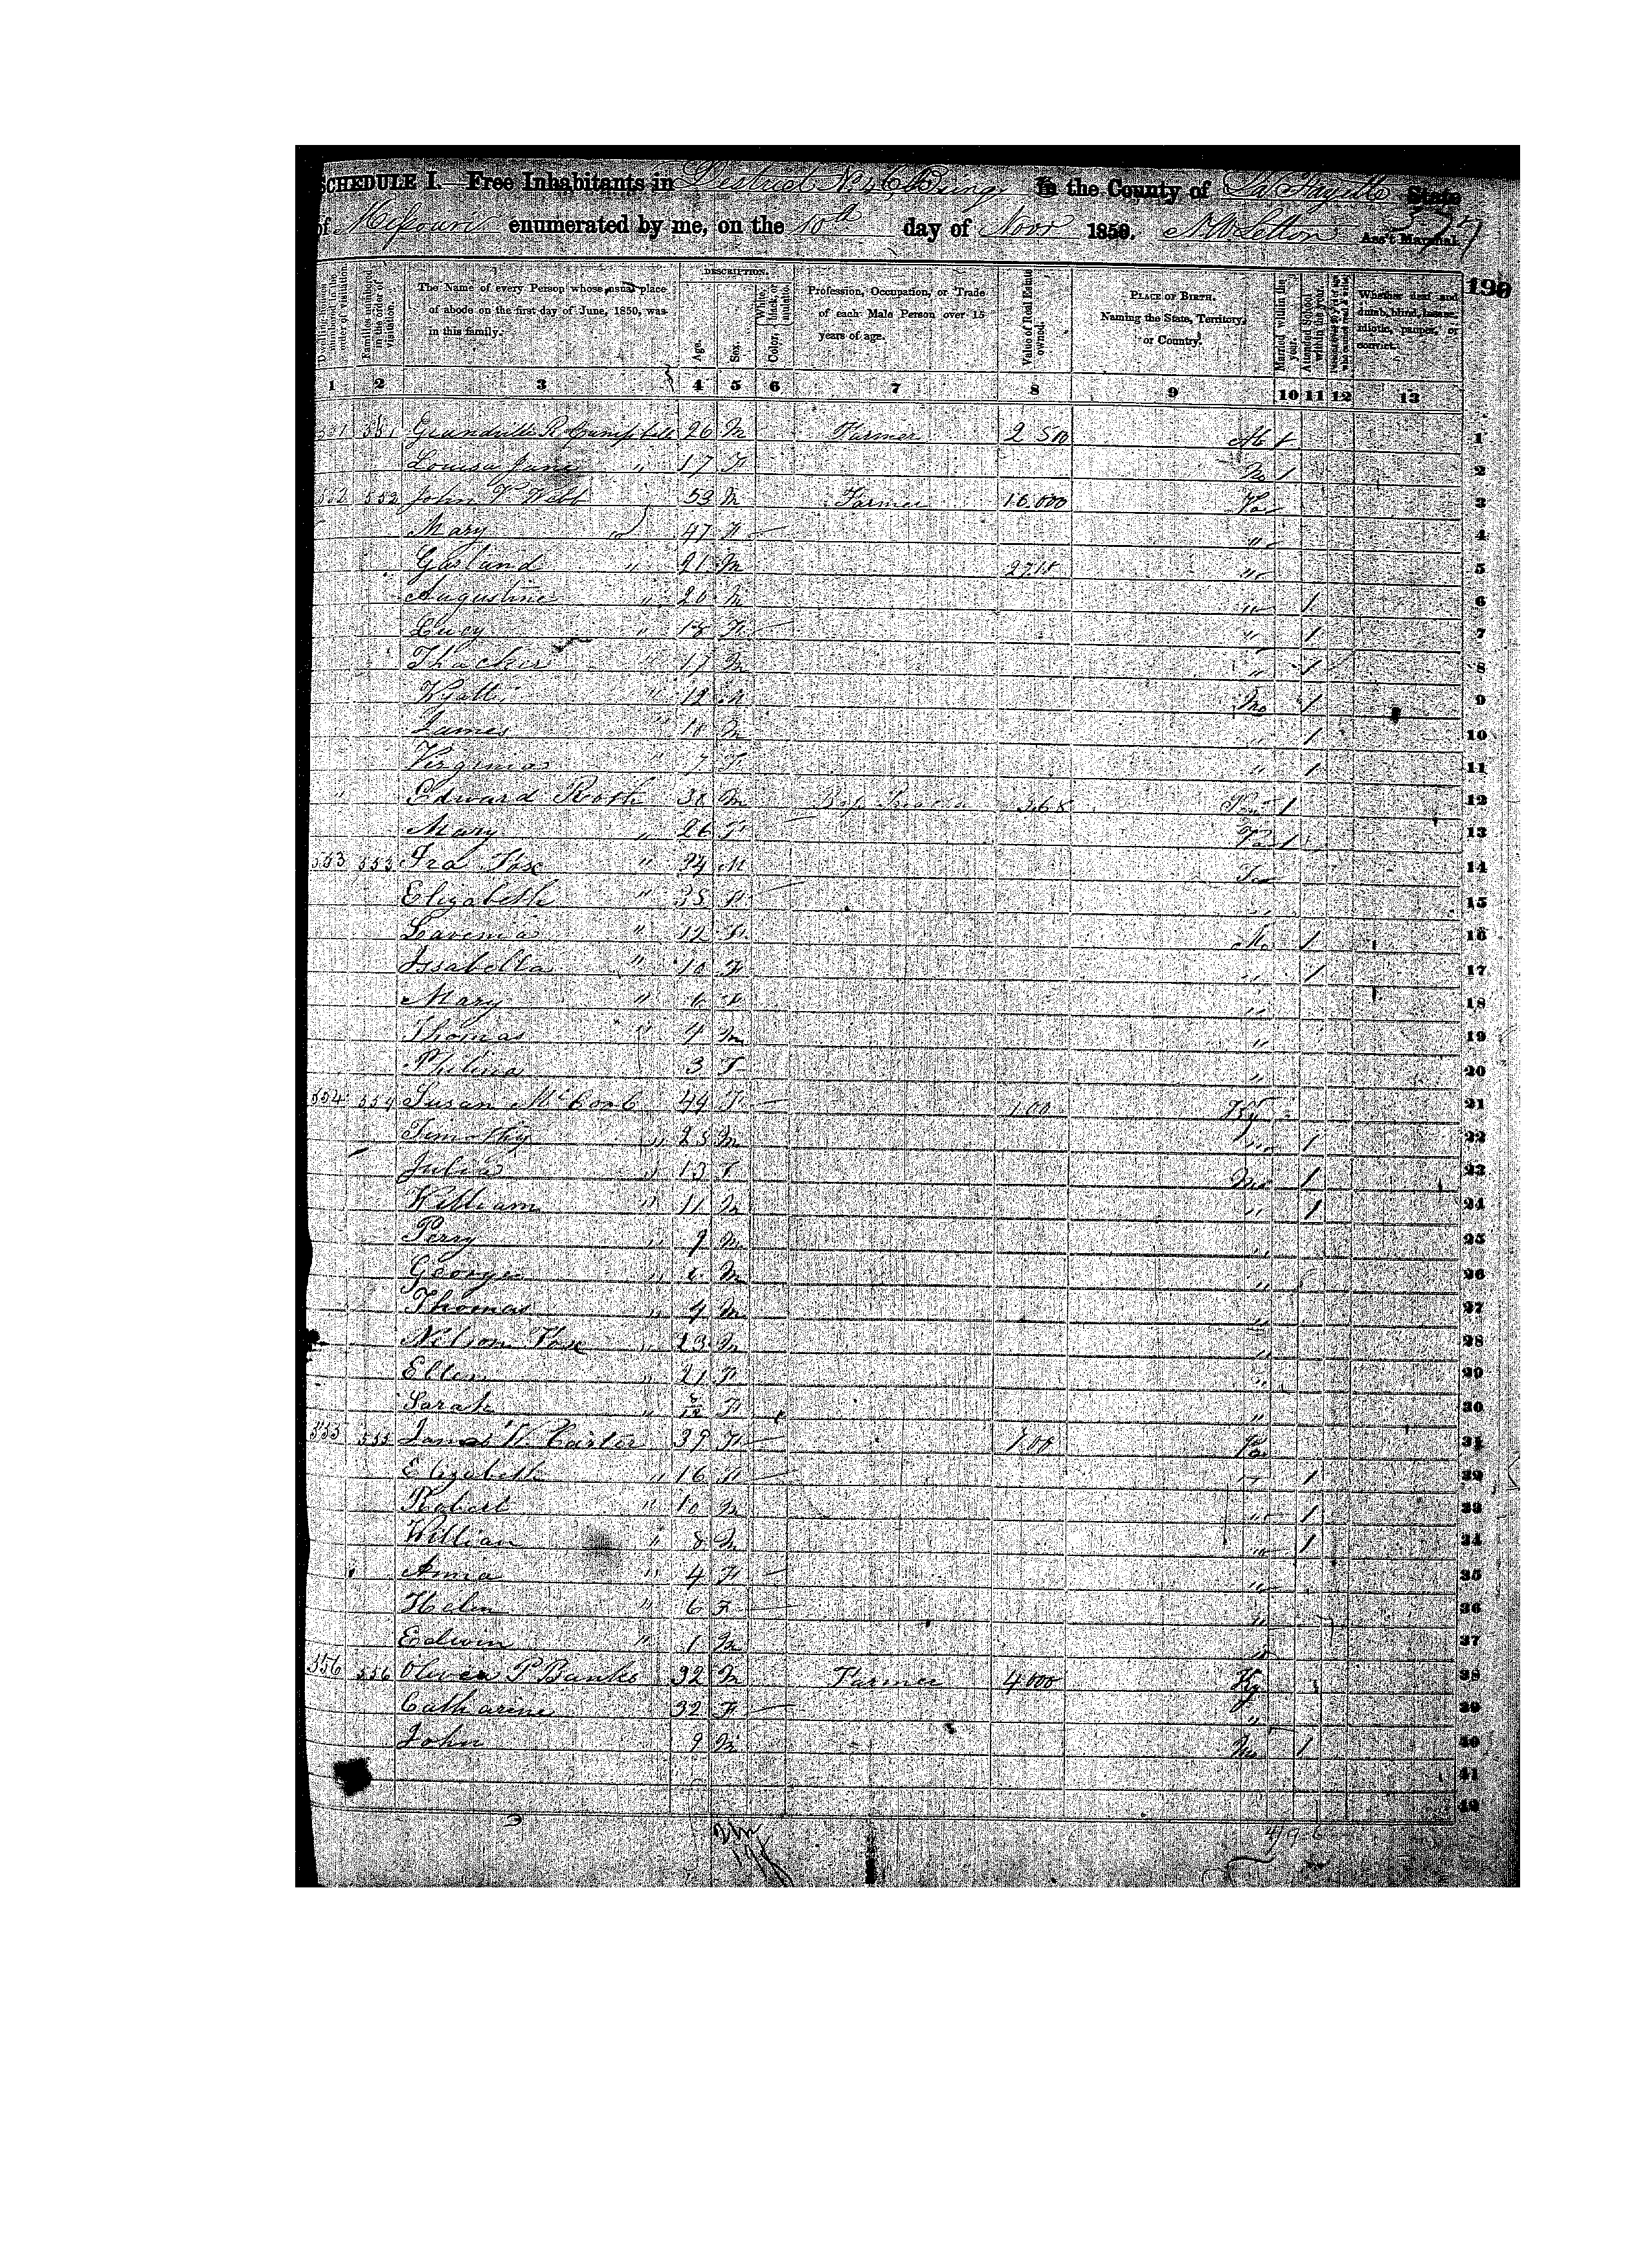 SCHEDULE I.—Free Inhabitants in District No 46 in the County of La Fayette State
of Missouri enumerated by me, on the 10th day of Novr 1850. Ass't Marshal.
190
DESCRIPTION.
Dwelling-houses numbered in the order of visitation. Families numbered in the order of visitation. The Name of every Person whose usual place of abode on the first day of June, 1850, was in this family. Age. Sex. Color, White, black, or mulatto. Profession, Occupation, or Trade of each Male Person over 15 years of age. Value of Real Estate owned. PLACE OF BIRTH. Naming the State, Territory, or Country. Married within the year. Attended School within the year. Whether deaf and dumb, blind, insane, idiotic, pauper, or convict.
1 2 3 4 5 6 7 8 9 10 11 12 13
551 551 Granville R Campbell 26 M Farmer 250 Mo 1 1
Louisa Jane " 17 F Mo 1 2
552 552 John V Webb 53 M Farmer 16.000 Va 3
Mary 47 F " 4
Garland " 21 M " 5
Augustine " 20 M " 1 6
Lucy " 18 F " 1 7
Thacker " 17 M " 1 8
Wyatt " 12 M Mo 1 9
James " 10 M " 1 10
Virginia " 7 F " 1 11
" Edward 38 M 368 1 12
Mary " 26 F Va 1 13
553 553 Ira Fox " 34 M 14
Elizabeth " 35 F " 15
Lavenia " 12 F Mo 1 16
Issabella " 10 F " 1 17
Mary " 6 F " 18
Thomas " 4 M " 19
3 F " 20
554 554 Susan 44 F 100 Ky 21
Timothy " 25 M " 1 22
Julia " 13 F Mo 1 23
William " 11 M " 1 24
Perry " 9 M " 25
George " 6 M " 26
Thomas " 4 M " 27
Nelson Fox " 23 M " 28
Ellen " 21 F " 29
Sarah " F " 30
555 555 W. Carter 39 F 700 Va 31
Elizabeth " 16 F " 1 32
Robert " 10 M " 1 33
William " 8 M " 1 34
" 4 F " 35
Helen " 6 F " 36
Edwin " 1 M " 37
556 556 Oliver P Banks 32 M Farmer 4000 Ky 38
Catharine 32 F " 39
John 9 M Mo 1 40
41
42